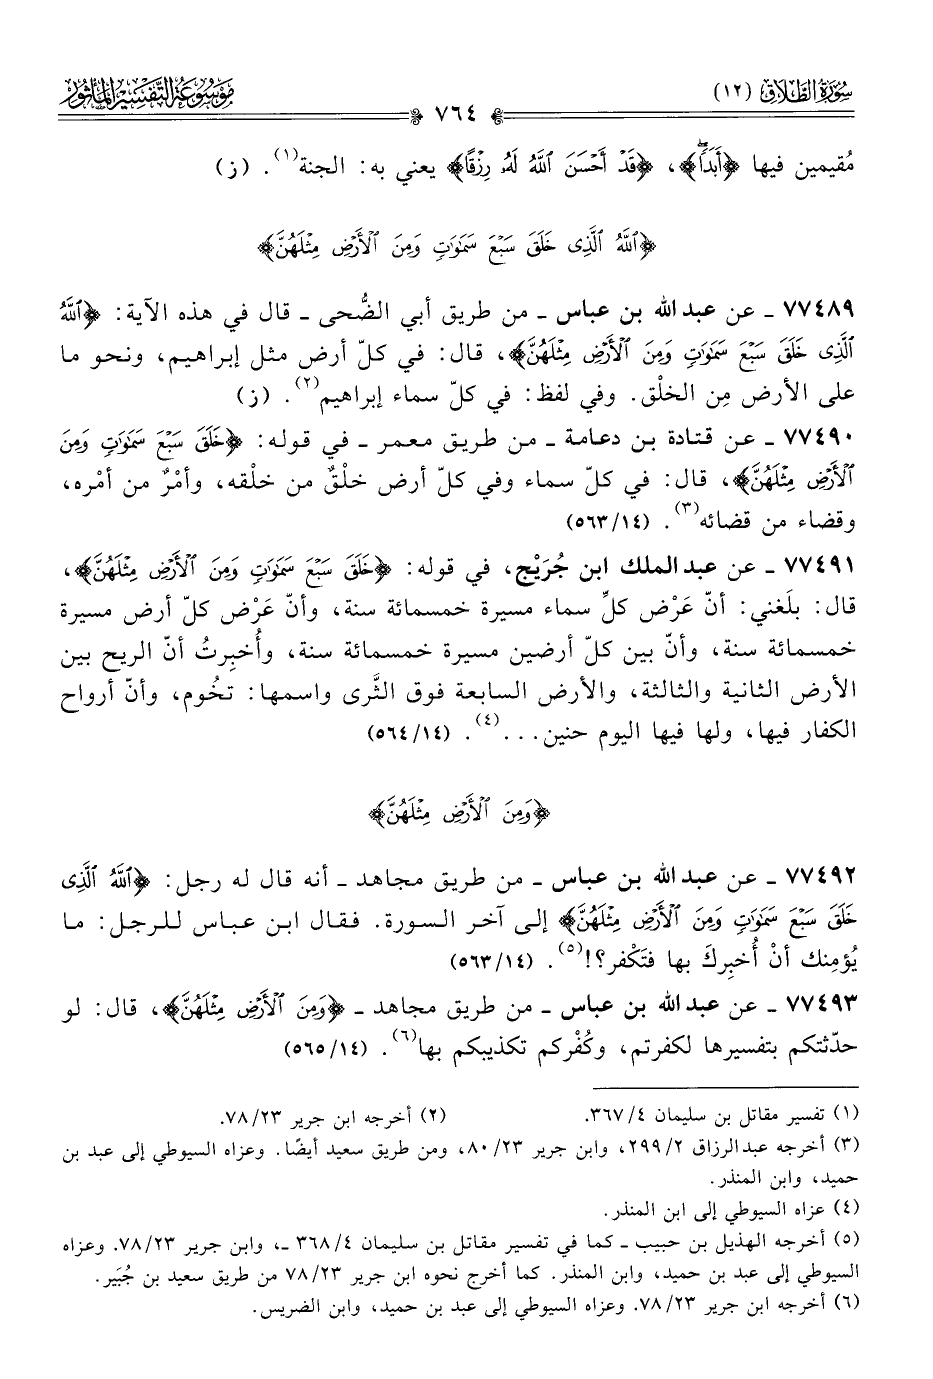 سُورَةُ الطَّلَاقِ (١٢)
٧٦٤
مَوْسُوعَةُ التَّفْسِيرِ المَأْثُورِ
مُقيمين فيها ﴿أَبَدًا﴾، ﴿قَدْ أَحْسَنَ ٱللَّهُ لَهُۥ رِزْقًا﴾ يعني به: الجنة(١). (ز)
﴿ٱللَّهُ ٱلَّذِى خَلَقَ سَبْعَ سَمَٰوَٰتٍ وَمِنَ ٱلْأَرْضِ مِثْلَهُنَّ﴾
٧٧٤٨٩ ـ عن عبد الله بن عباس ـ من طريق أبي الضُّحى ـ قال في هذه الآية: ﴿ٱللَّهُ
ٱلَّذِى خَلَقَ سَبْعَ سَمَٰوَٰتٍ وَمِنَ ٱلْأَرْضِ مِثْلَهُنَّ﴾، قال: في كلّ أرض مثل إبراهيم، ونحو ما
على الأرض مِن الخلْق. وفي لفظ: في كلّ سماء إبراهيم(٢). (ز)
٧٧٤٩٠ ـ عن قتادة بن دعامة ـ من طريق معمر ـ في قوله: ﴿خَلَقَ سَبْعَ سَمَٰوَٰتٍ وَمِنَ
ٱلْأَرْضِ مِثْلَهُنَّ﴾، قال: في كلّ سماء وفي كلّ أرض خلْقٌ من خلْقه، وأمْرٌ من أمْره،
وقضاء من قضائه(٣). (٥٦٣/١٤)
٧٧٤٩١ ـ عن عبد الملك ابن جُرَيْج، في قوله: ﴿خَلَقَ سَبْعَ سَمَٰوَٰتٍ وَمِنَ ٱلْأَرْضِ مِثْلَهُنَّ﴾،
قال: بلَغني: أنّ عَرْض كلِّ سماء مسيرة خمسمائة سنة، وأنّ عَرْض كلّ أرض مسيرة
خمسمائة سنة، وأنّ بين كلّ أرضين مسيرة خمسمائة سنة، وأُخبِرتُ أنّ الريح بين
الأرض الثانية والثالثة، والأرض السابعة فوق الثَّرى واسمها: تخُوم، وأنّ أرواح
الكفار فيها، ولها فيها اليوم حنين...(٤). (٥٦٤/١٤)
﴿وَمِنَ ٱلْأَرْضِ مِثْلَهُنَّ﴾
٧٧٤٩٢ ـ عن عبد الله بن عباس ـ من طريق مجاهد ـ أنه قال له رجل: ﴿ٱللَّهُ ٱلَّذِى
خَلَقَ سَبْعَ سَمَٰوَٰتٍ وَمِنَ ٱلْأَرْضِ مِثْلَهُنَّ﴾ إلى آخر السورة. فقال ابن عباس للرجل: ما
يُؤمِنك أنْ أُخبِركَ بها فتَكْفر؟!(٥). (٥٦٣/١٤)
٧٧٤٩٣ ـ عن عبد الله بن عباس ـ من طريق مجاهد ـ ﴿وَمِنَ ٱلْأَرْضِ مِثْلَهُنَّ﴾، قال: لو
حدّثتكم بتفسيرها لكفرتم، وكُفْركم تكذيبكم بها(٦). (٥٦٥/١٤)
(١) تفسير مقاتل بن سليمان ٣٦٧/٤. (٢) أخرجه ابن جرير ٧٨/٢٣.
(٣) أخرجه عبدالرزاق ٢٩٩/٢، وابن جرير ٨٠/٢٣، ومن طريق سعيد أيضًا. وعزاه السيوطي إلى عبد بن
حميد، وابن المنذر.
(٤) عزاه السيوطي إلى ابن المنذر.
(٥) أخرجه الهذيل بن حبيب ـ كما في تفسير مقاتل بن سليمان ٣٦٨/٤ ـ، وابن جرير ٧٨/٢٣. وعزاه
السيوطي إلى عبد بن حميد، وابن المنذر. كما أخرج نحوه ابن جرير ٧٨/٢٣ من طريق سعيد بن جُبَير.
(٦) أخرجه ابن جرير ٧٨/٢٣. وعزاه السيوطي إلى عبد بن حميد، وابن الضريس.